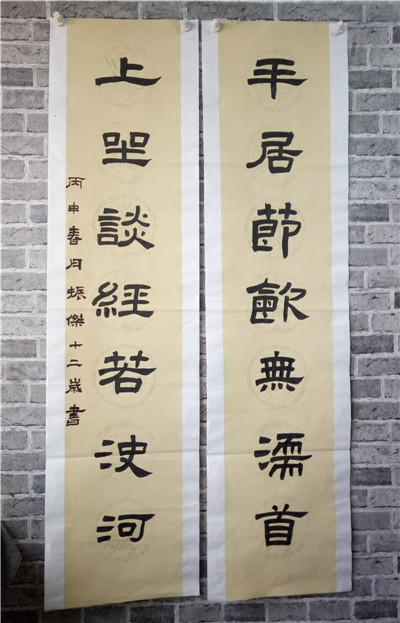 平居節飲無濡首
上坐談經若決河
丙申春月振傑十二歲書